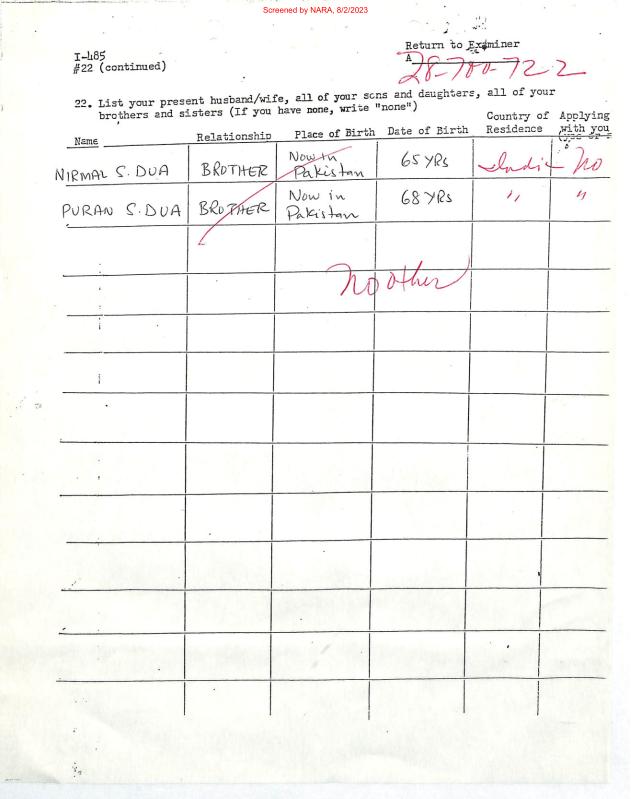 Screened by NARA, 8/2/2023
I-485
#22 (continued)
Return to Examiner
A 28-700-722
22. List your present husband/wife, all of your sons and daughters, all of your
brothers and sisters (If you have none, write "none")
Name Relationship Place of Birth Date of Birth Country of Residence Applying with you
NIRMAL S. DUA BROTHER Now in Pakistan 65 YRS India No
PURAN S. DUA BROTHER Now in Pakistan 68 YRs " "
No other